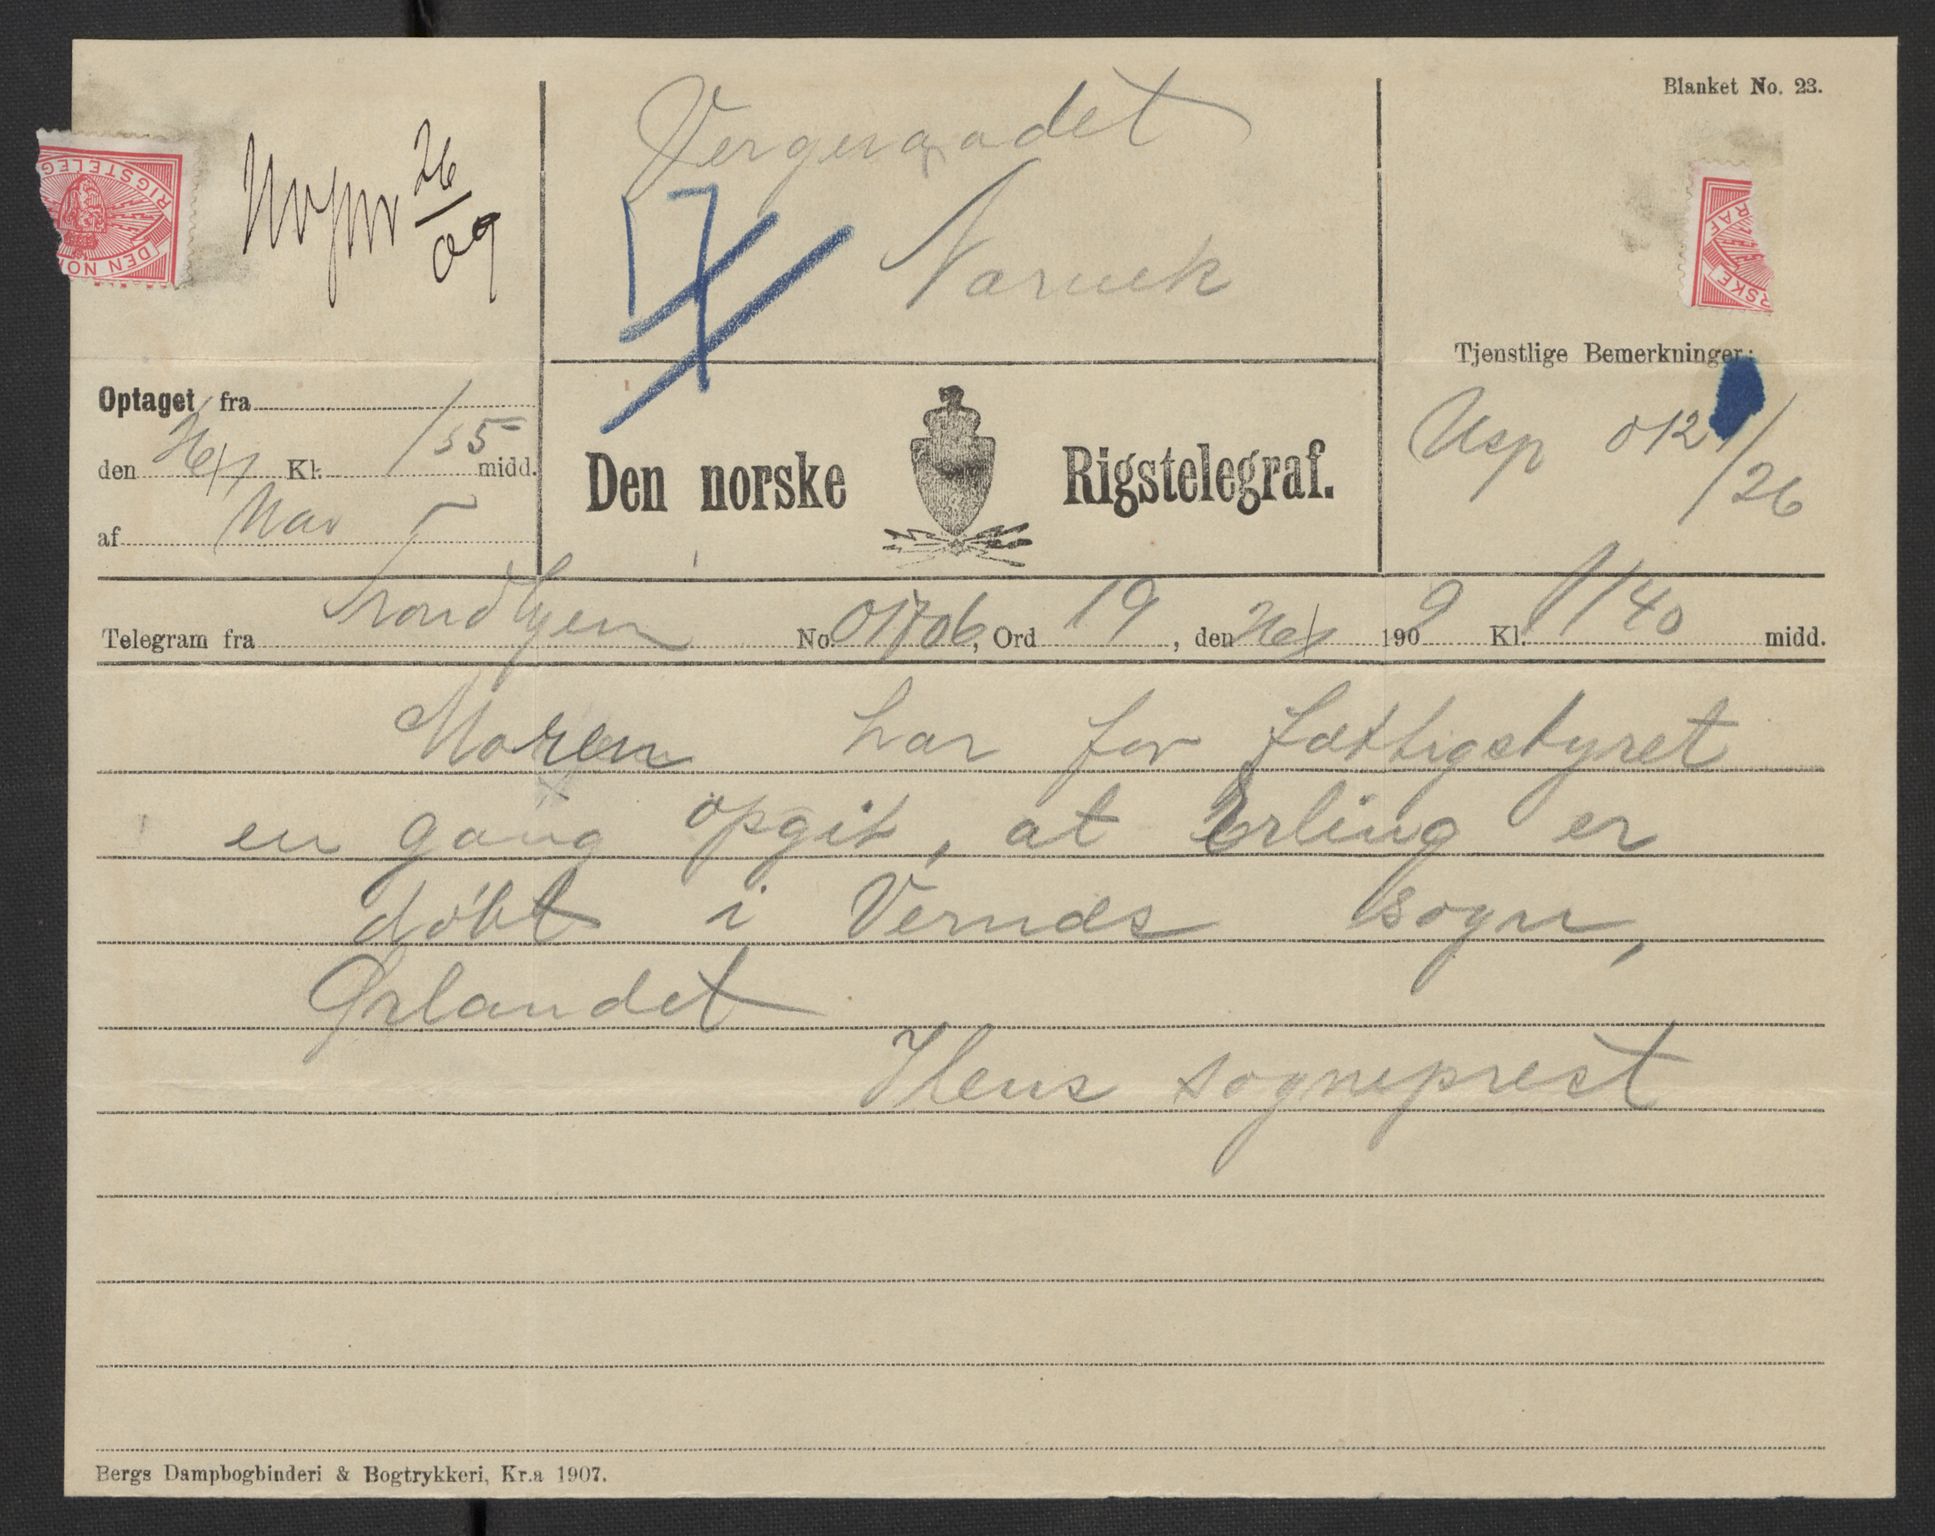 Blanket No. 23.
Vergeraadet
Narvik
17
26
09
RIGSTELEG
DEN NOR
Tjenstlige Bemerkninger:
Optaget fra
den 26/1 Kl. 1 55 midd.
af Nav
Den norske Rigstelegraf.
012
/26
Telegram fra Trondhjem No. 01706, Ord 19, den 26/1 1909 Kl. 1140 midd.
Moren har for fattigstyret
en gang opgit, at Erling er
døbt i Vernæs sogn,
Ørlandet
Ilens sogneprest
Bergs Dampbogbinderi & Bogtrykkeri, Kr.a 1907.